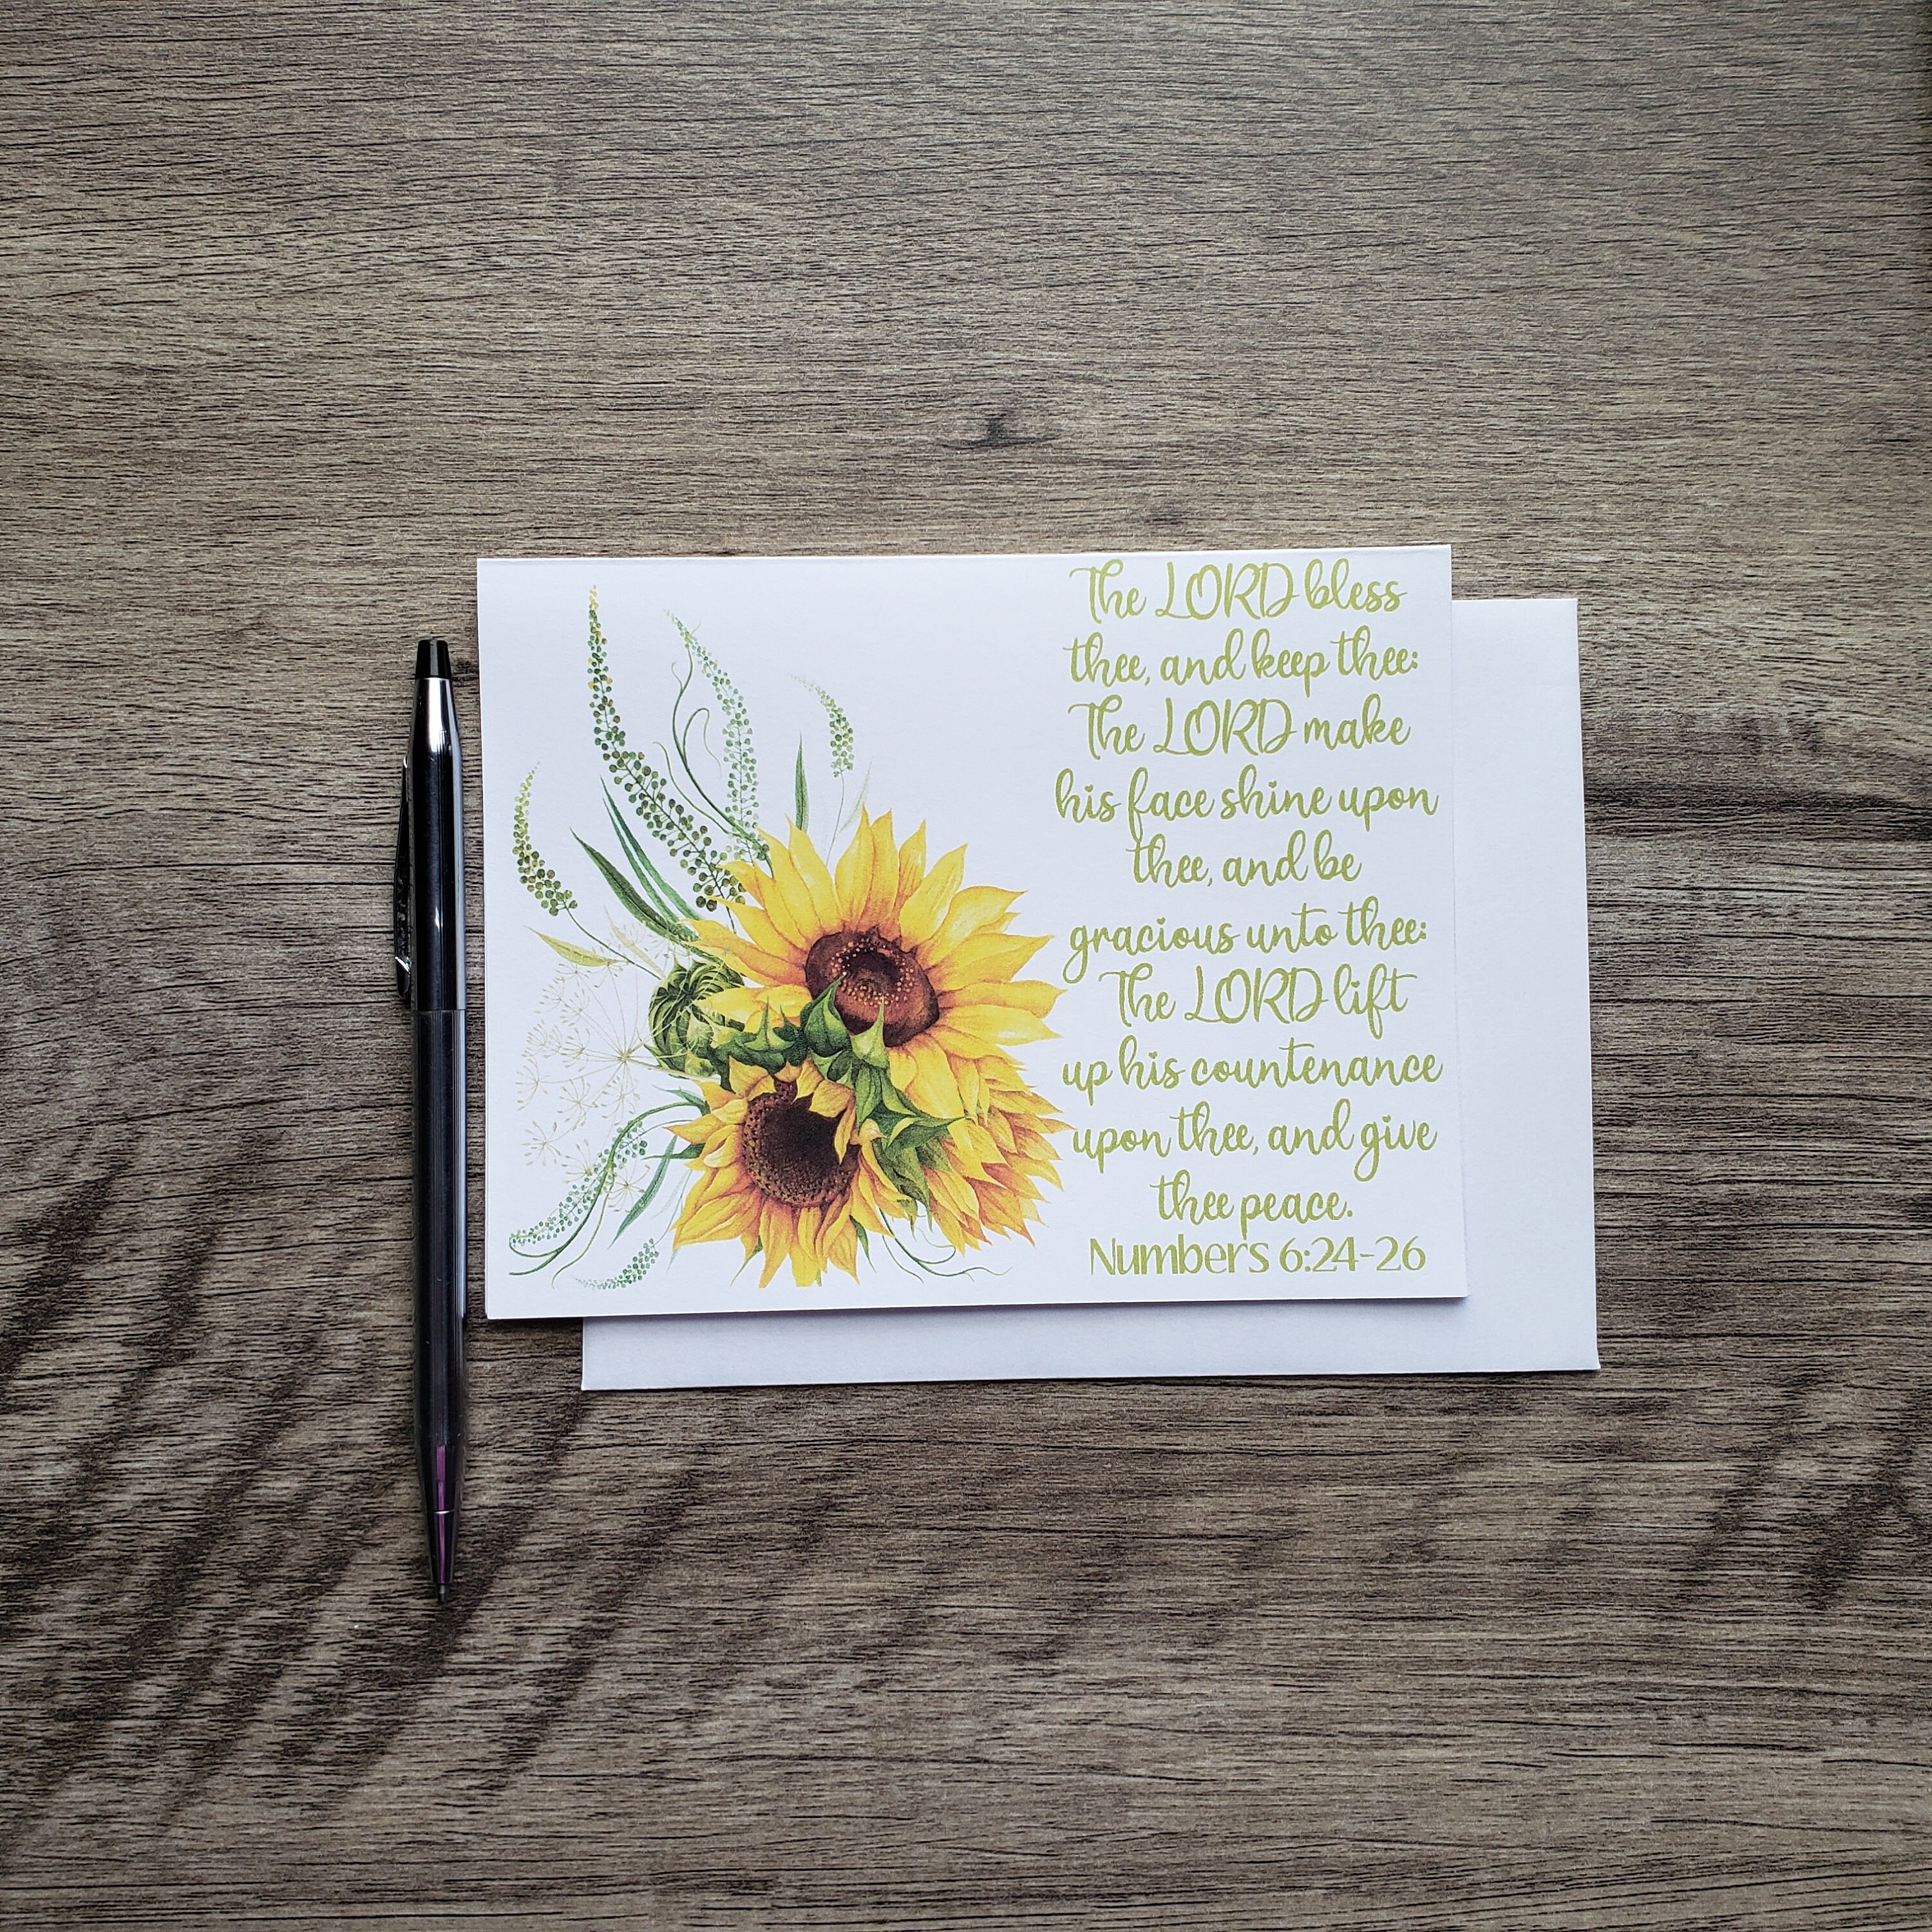 The LORD bless
thee, and keep thee:
The LORD make
his face shine upon
thee, and be
gracious unto thee:
The LORD lift
up his countenance
upon thee, and give
thee peace.
Numbers 6:24-26